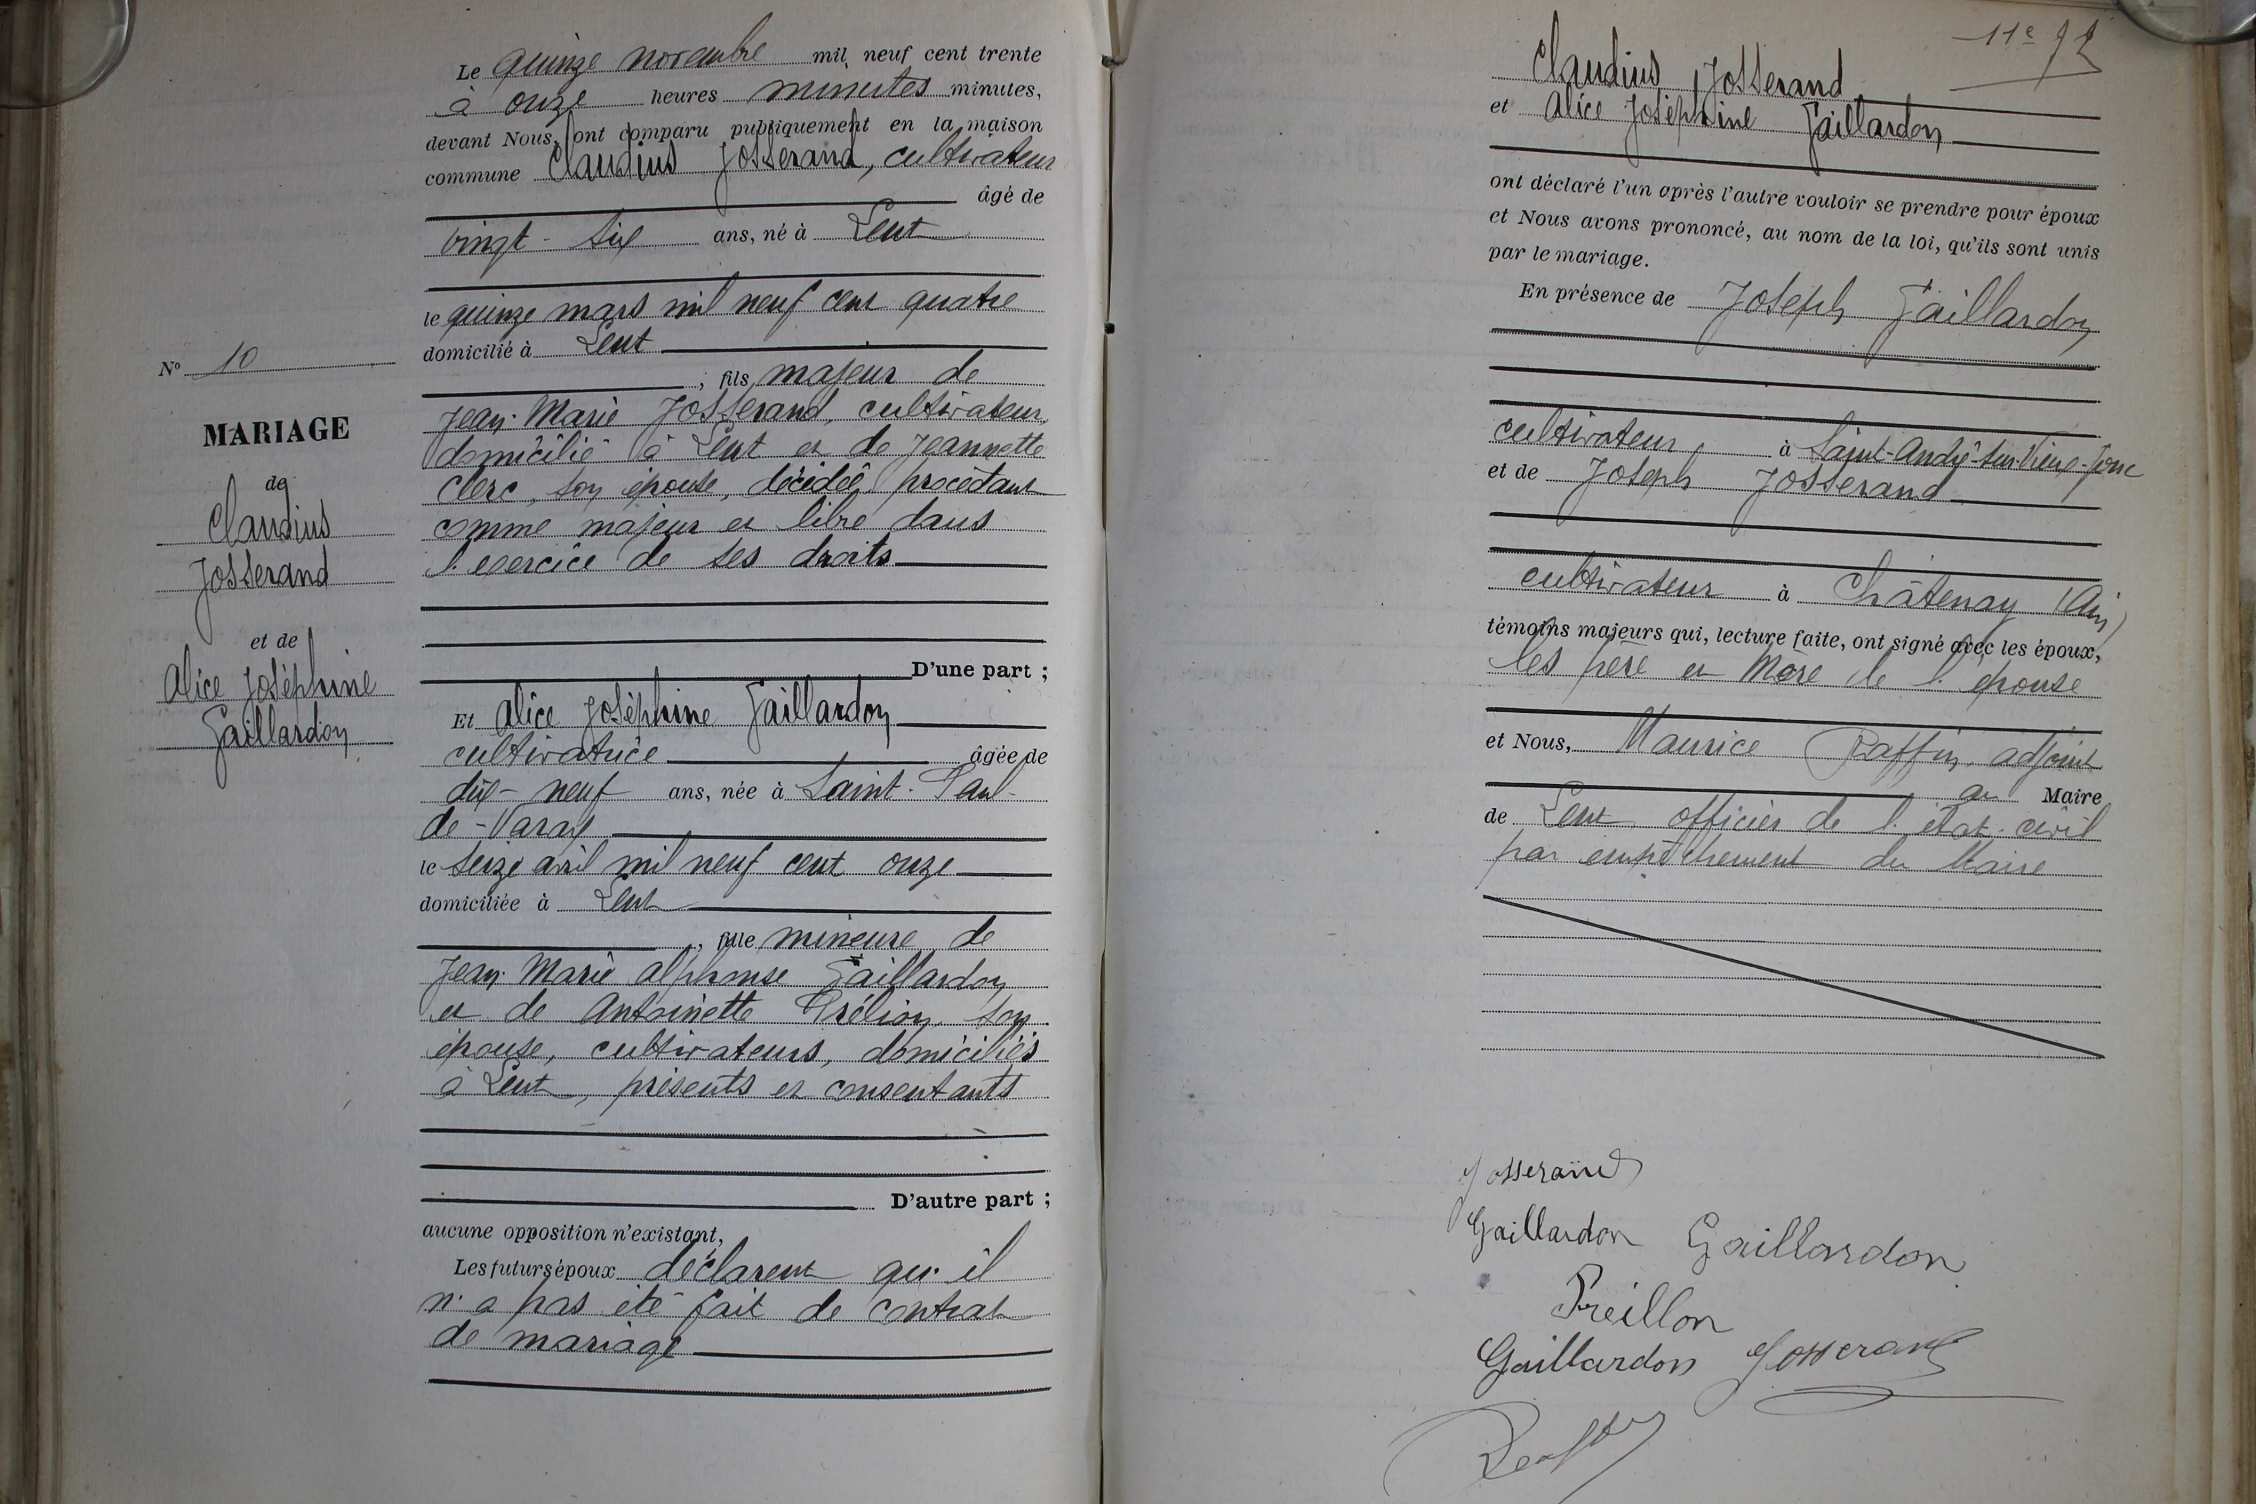 Le quinze novembre mil neuf cent trente
à onze heures minutes minutes,
devant Nous, ont comparu publiquement en la maison
commune Claudius Josserand, cultivateur
âgé de
vingt-six ans, né à Lent
le quinze mars mil neuf cent quatre
domicilié à Lent
, fils majeur de
Jean-Marie Josserand, cultivateur,
domicilié à Lent et de Jeannette
Clerc, son épouse, décédée, procédant
comme majeur et libre dans
l'exercice de ses droits
D'une part ;
Et Alice Joséphine Gaillardon
cultivatrice âgée de
dix-neuf ans, née à Saint-Paul-
de-Varax
le seize avril mil neuf cent onze
domiciliée à Lent
, fille mineure de
Jean-Marie Alphonse Gaillardon
et de Antoinette Prélion son
épouse, cultivateurs, domiciliés
à Lent, présents et consentants
D'autre part ;
aucune opposition n'existant,
Les futurs époux déclarent qu'il
n'a pas été fait de contrat
de mariage
N° 10
MARIAGE
de
Claudius
Josserand
et de
Alice Joséphine
Gaillardon
11e
Claudius Josserand
et Alice Joséphine Gaillardon
ont déclaré l'un après l'autre vouloir se prendre pour époux
et Nous avons prononcé, au nom de la loi, qu'ils sont unis
par le mariage.
En présence de Joseph Gaillardon
cultivateur, à Saint-André-sur-Vieux-Jonc
et de Joseph Josserand
cultivateur à Châtenay (Ain)
témoins majeurs qui, lecture faite, ont signé avec les époux,
les père et mère de l'épouse
et Nous, Maurice Raffin, adjoint
au Maire
de Lent officier de l'état-civil
par empêchement du Maire
Josserand
Gaillardon Gaillardon
Preillon
Gaillardon Josserand